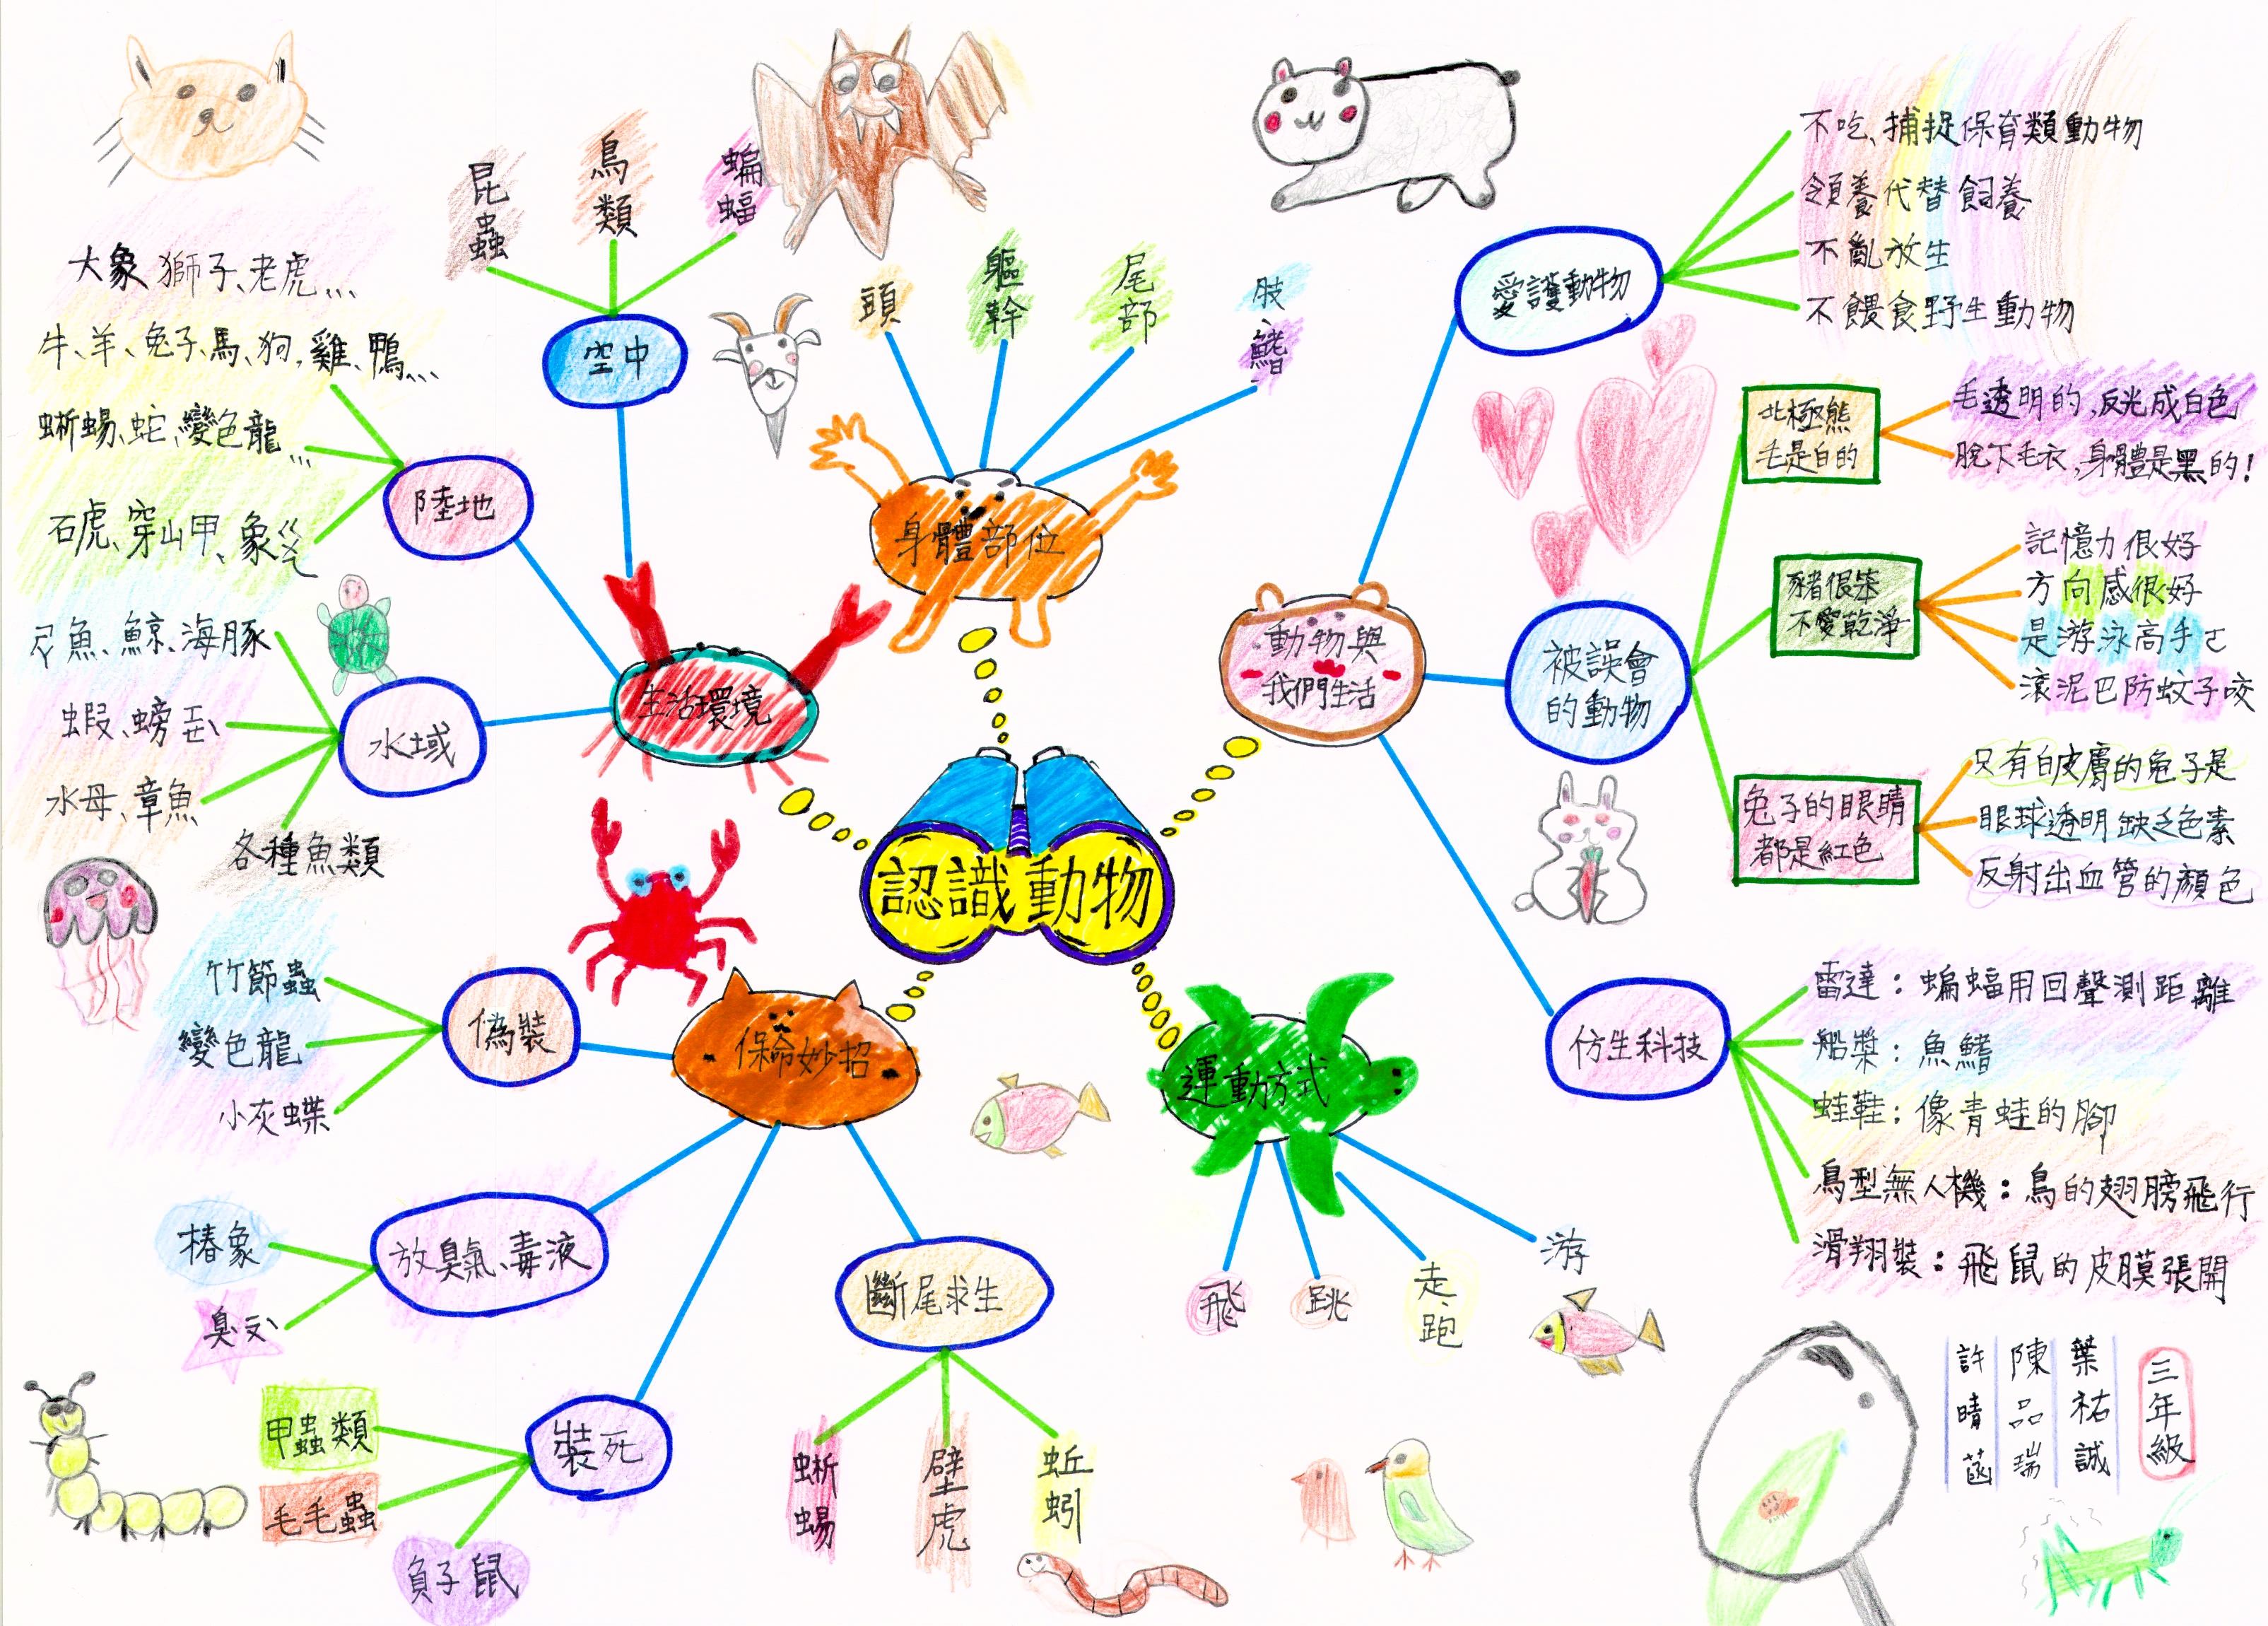 認識動物
身體部位
頭
軀幹
尾部
肢、鰭
生活環境
空中
昆蟲
鳥類
蝙蝠
陸地
大象獅子、老虎...
牛、羊、兔子、馬、狗,雞、鴨...
蜥蜴、蛇、變色龍...
石虎、穿山甲、象ㄍㄨㄟ
水域
ㄕ魚、鯨、海豚
蝦、螃ㄒㄧㄝˋ
水母、章魚
各種魚類
保命妙招
偽裝
竹節蟲
變色龍
小灰蝶
放臭氣、毒液
椿象
臭ㄧㄡˋ
裝死
甲蟲類
毛毛蟲
負子鼠
斷尾求生
蜥蜴
壁虎
蚯蚓
運動方式
飛
跳
走、跑
游
動物與
我們生活
愛護動物
不吃、捕捉保育類動物
領養代替飼養
不亂放生
不餵食野生動物
被誤會
的動物
北極熊
毛是白的
毛透明的,反光成白色
脫下毛衣,身體是黑的!
豬很笨
不愛乾淨
記憶力很好
方向感很好
是游泳高手ㄛ
滾泥巴防蚊子咬
兔子的眼睛
都是紅色
只有白皮膚的兔子是
眼球透明缺乏色素
反射出血管的顏色
仿生科技
雷達:蝙蝠用回聲測距離
船槳:魚鰭
蛙鞋:像青蛙的腳
鳥型無人機:鳥的翅膀飛行
滑翔裝:飛鼠的皮膜張開
三年級
葉祐誠
陳品瑞
許晴菡